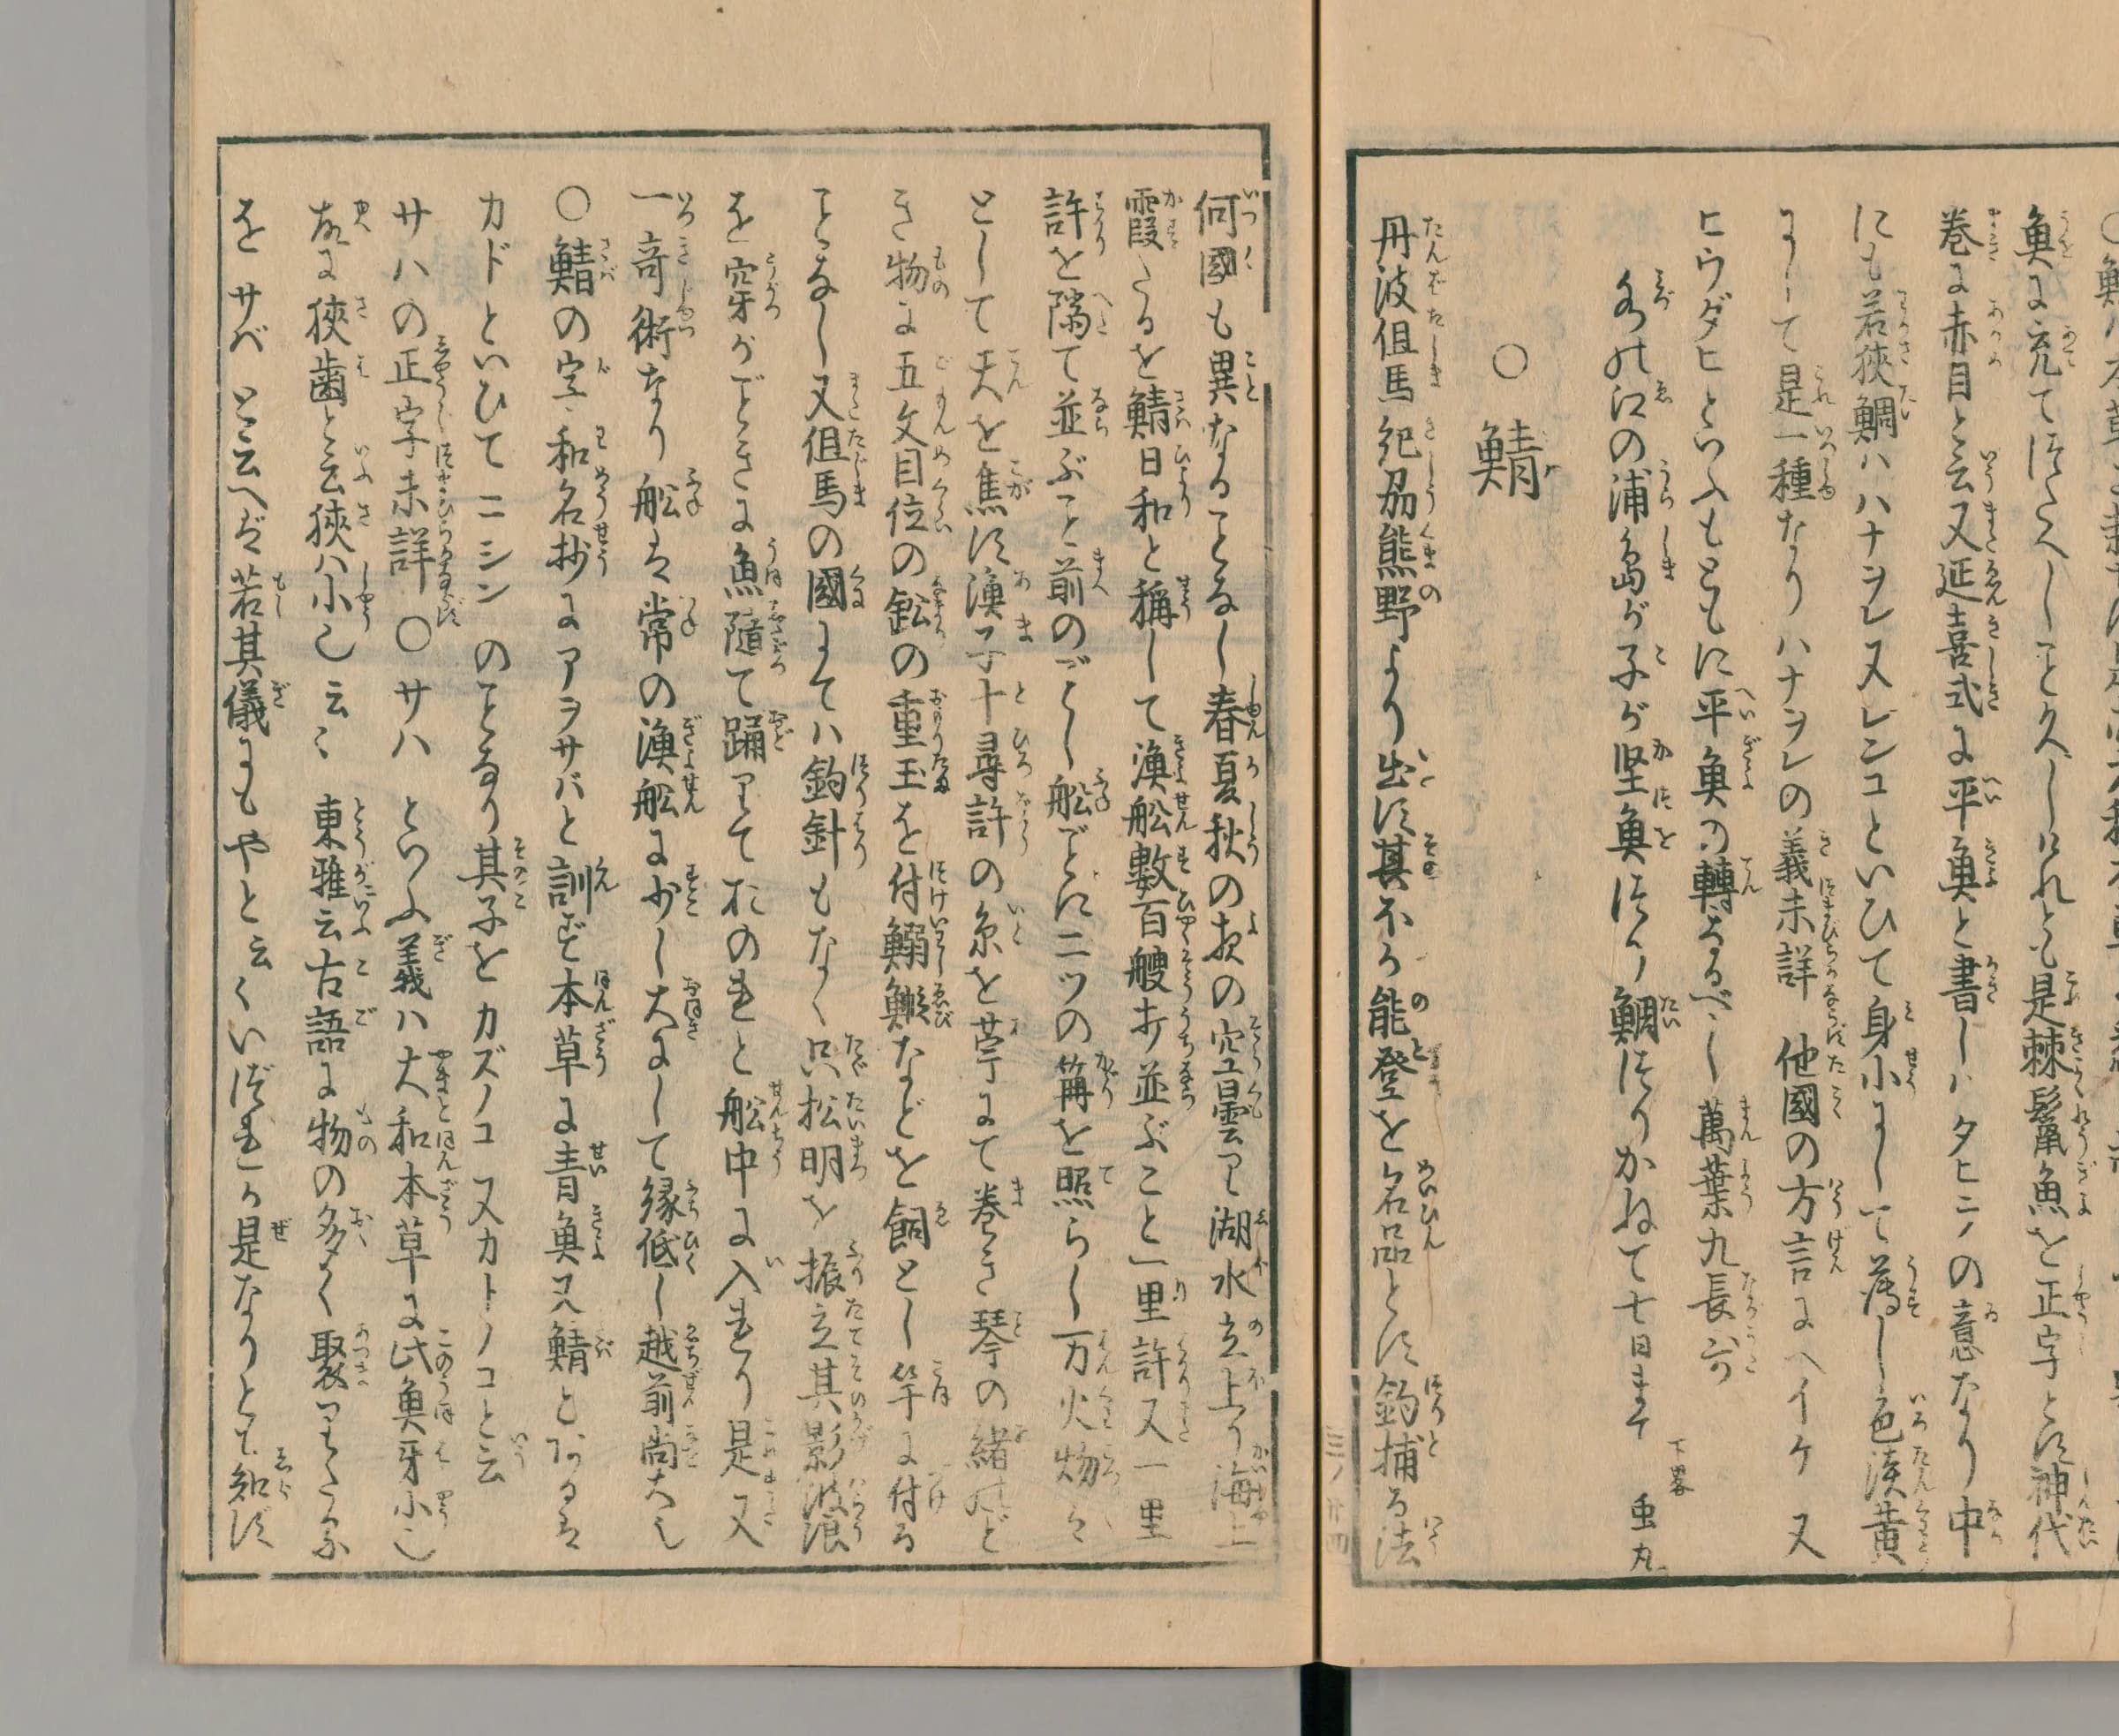 魚に充て傳へしこと久しけれとも是棘鬣魚を正字とす神代
巻に赤目と云又延喜式に平魚と書しハタヒラの意なり中
にも若狹鯛ハハナヲレ又レンコといひて身小にして薄し色淡黄
にして是一種なりハナヲレの義未詳 他國の方言にヘイケ 又
ヒウダヒといふもともに平魚の轉なるべし 萬葉九長哥
水の江の浦島が子が堅魚つり鯛つりかねて七日まて 下畧 虫丸
○鯖
丹波但馬紀刕熊野より出す其ほか能登を名品とす釣捕る法
何國も異なることなし春夏秋の夜の空曇り湖水立上り海上
霞たるを鯖日和と稱して漁舩數百艘打並ぶこと一里許又一里
許を隔て並ぶこと前のごとし舩ごとに二ツの篝を照らし万火
として天を焦す漁子十尋許の糸を苧にて巻き琴の緒のごと
き物に五文目位の鉛の重玉を付鰯鰕などを餌とし竿に付る
ことなし又但馬の國にてハ釣針もなく只松明を振立其影波浪
を穿がごときに魚隨て踊りておのれと舩中に入れり是又
一奇術なり舩は常の漁舩に少し大にして縁低し越前尚大也
○鯖の字 和名抄にアヲサバと訓ず本草に青魚又鯖とあるは
カドといひてニシンのことなり其子をカズノコ又カトノコと云
サハの正字未詳 ○サハといふ義ハ大和本草に此魚牙小也
故に狹歯と云狹ハ小也云〻 東雅云古語に物の多く聚りたる
をサバと云へば若其儀にもやと云〻いづれか是なりとも知らず
三ノ廿四